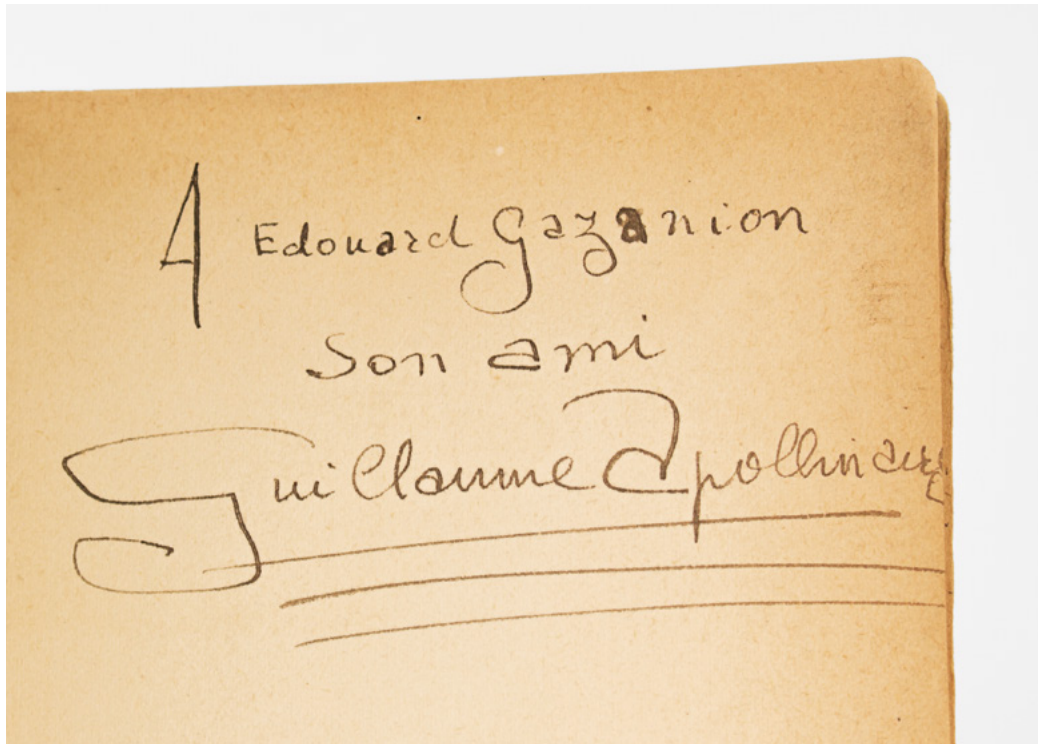 A Edouard Gazanion
Son ami
Guillaume Apollinaire